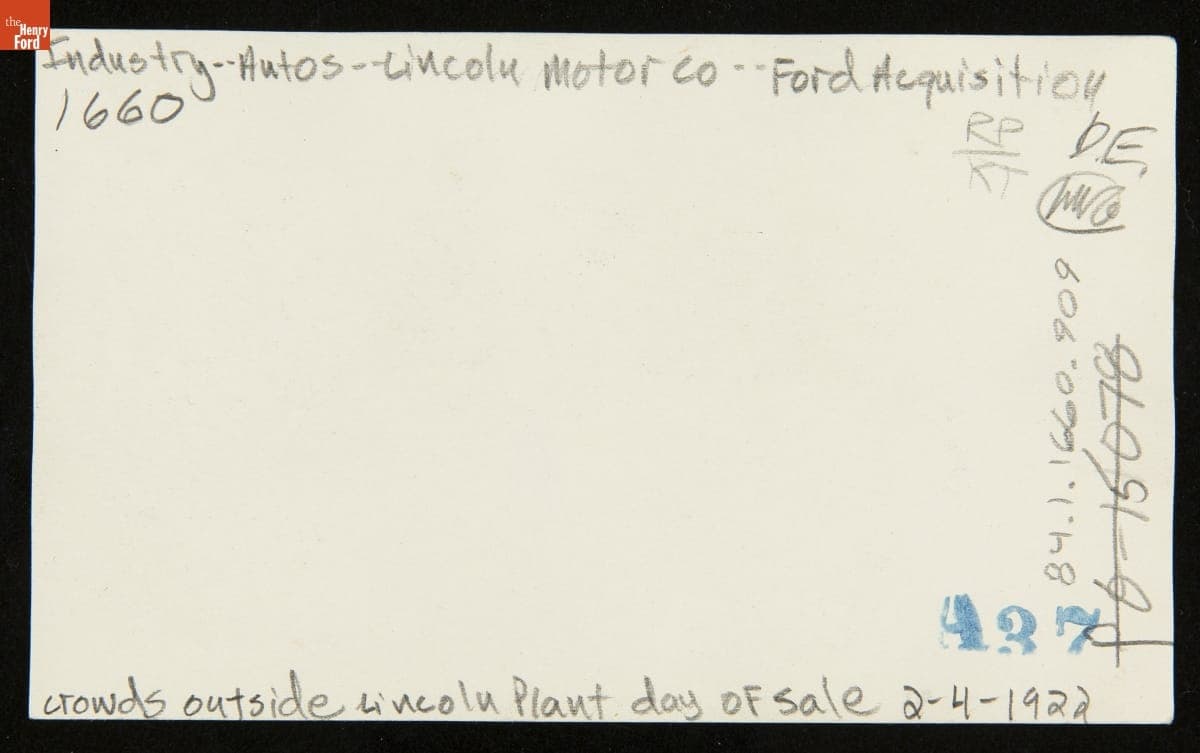 the
Henry
Ford
Industry--Autos--Lincoln Motor Co--Ford Acquisition
1660
RP
KT
D.E.
84.1.1660.909
P-6-15078
A37
crowds outside Lincoln Plant day of sale 2-4-1922